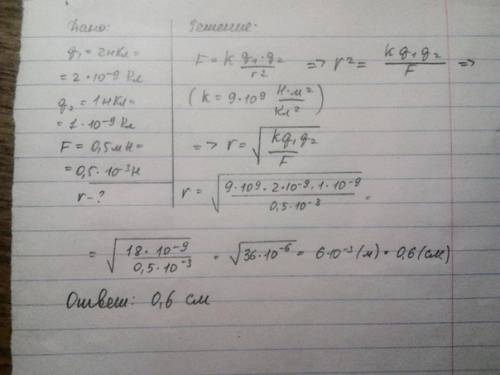 Дано:
q₁ = 2нКл =
= 2·10⁻⁹ Кл
q₂ = 1нКл =
= 1·10⁻⁹ Кл
F = 0,5мН =
= 0,5·10⁻³Н
r - ?
Решение:
F = k q₁·q₂ / r² => r² = k q₁q₂ / F =>
(k = 9·10⁹ Н·м² / Кл²)
=> r = √(kq₁q₂ / F)
r = √(9·10⁹·2·10⁻⁹·1·10⁻⁹ / 0,5·10⁻³) =
= √(18·10⁻⁹ / 0,5·10⁻³) = √36·10⁻⁶ = 6·10⁻³(м) = 0,6(см)
Ответ: 0,6 см